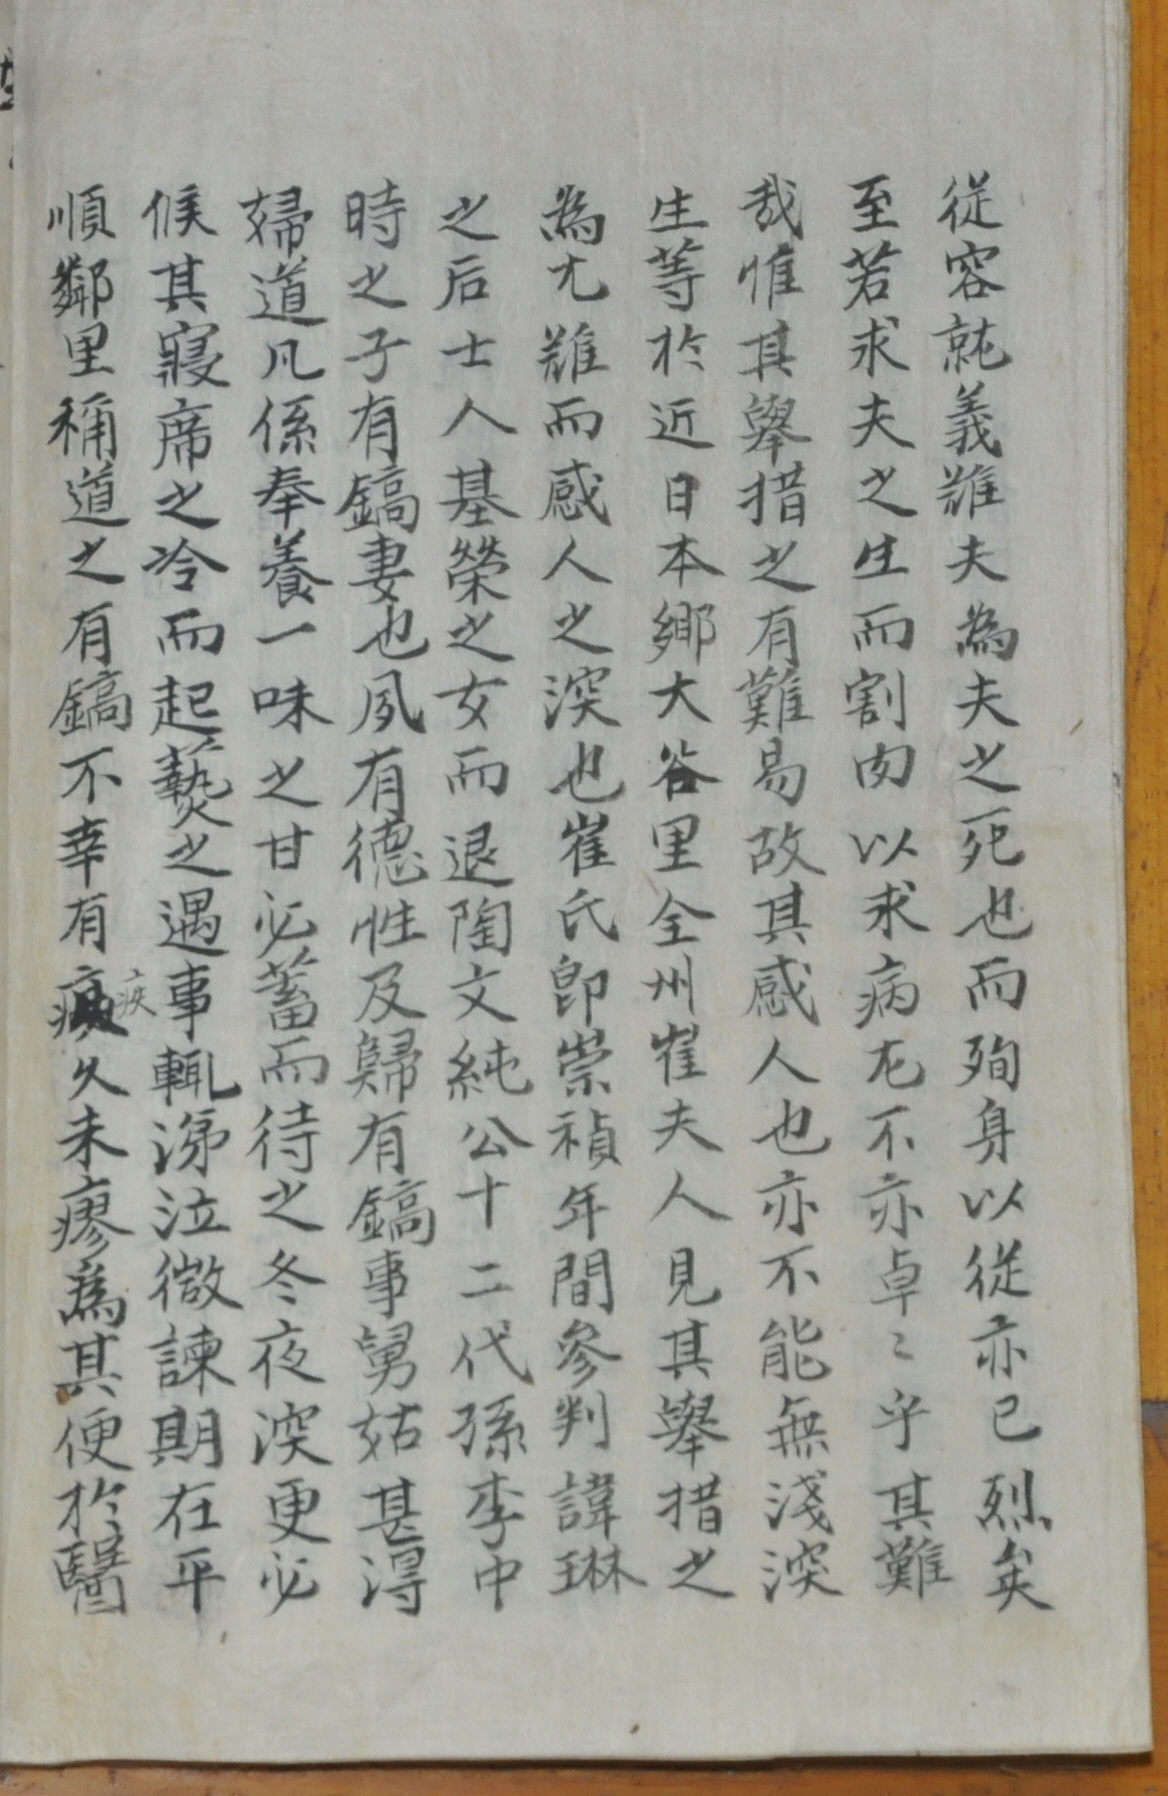 從容就義難夫為夫之死也而殉身以從亦已烈矣
至若求夫之生而割肉以求病尤不亦卓〻乎其難
哉惟其舉措之有難易故其感人也亦不能無淺深
生等於近日本鄉大谷里全州崔夫人見其舉措之
為尤難而感人之深也崔氏卽崇禎年間參判諱琳
之后士人基榮之女而退陶文純公十二代孫李中
時之子有鎬妻也夙有德性及歸有鎬事舅姑甚得
婦道凡係奉養一味之甘必蓄而待之冬夜深更必
候其寢席之冷而起爇之遇事輒涕泣微諫期在平
順鄰里稱道之有鎬不幸有疾久未瘳為其便於醫